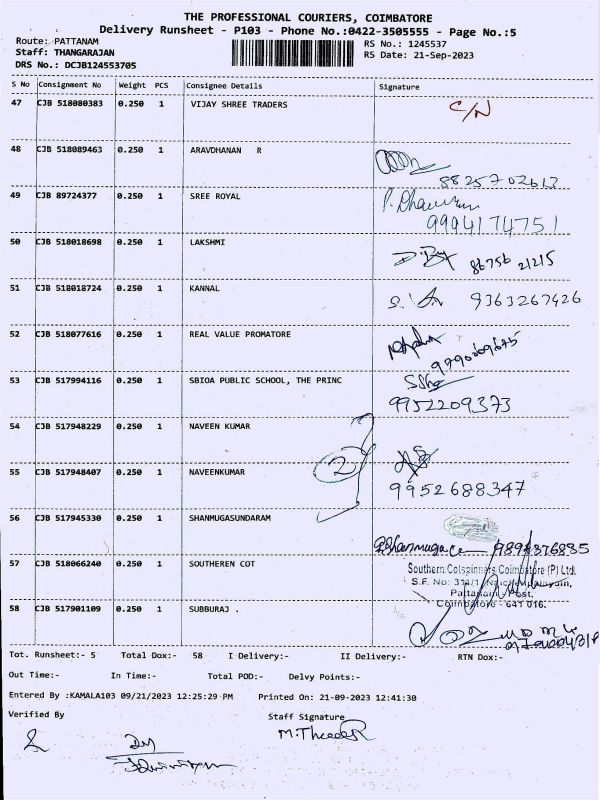 THE PROFESSIONAL COURIERS, COIMBATORE
Delivery Runsheet - P103 - Phone No.:0422-3505555 - Page No.:5
Route: PATTANAM RS No.: 1245537
Staff: THANGARAJAN RS Date: 21-Sep-2023
DRS No.: DCJB124553705
S No Consignment No Weight PCS Consignee Details Signature
47 CJB 518080383 0.250 1 VIJAY SHREE TRADERS C/N
48 CJB 518089463 0.250 1 ARAVDHANAN R
8825702613
49 CJB 89724377 0.250 1 SREE ROYAL
9994174751
50 CJB 518018698 0.250 1 LAKSHMI
86756 21215
51 CJB 518018724 0.250 1 KANNAL 9363267426
52 CJB 518077616 0.250 1 REAL VALUE PROMATORE
53 CJB 517994116 0.250 1 SBIOA PUBLIC SCHOOL, THE PRINC
9952209373
54 CJB 517948229 0.250 1 NAVEEN KUMAR
2
55 CJB 517948407 0.250 1 NAVEENKUMAR
9952688347
56 CJB 517945330 0.250 1 SHANMUGASUNDARAM
9894376885
57 CJB 518066240 0.250 1 SOUTHEREN COT
Southern Cotspinners Coimbatore (P) Ltd.
Pattanam Post,
Coimbatore - 641 016.
58 CJB 517901109 0.250 1 SUBBURAJ .
Tot. Runsheet:- 5 Total Dox:- 58 I Delivery:- II Delivery:- RTN Dox:-
Out Time:- In Time:- Total POD:- Delvy Points:-
Entered By :KAMALA103 09/21/2023 12:25:29 PM Printed On: 21-09-2023 12:41:30
Verified By Staff Signature